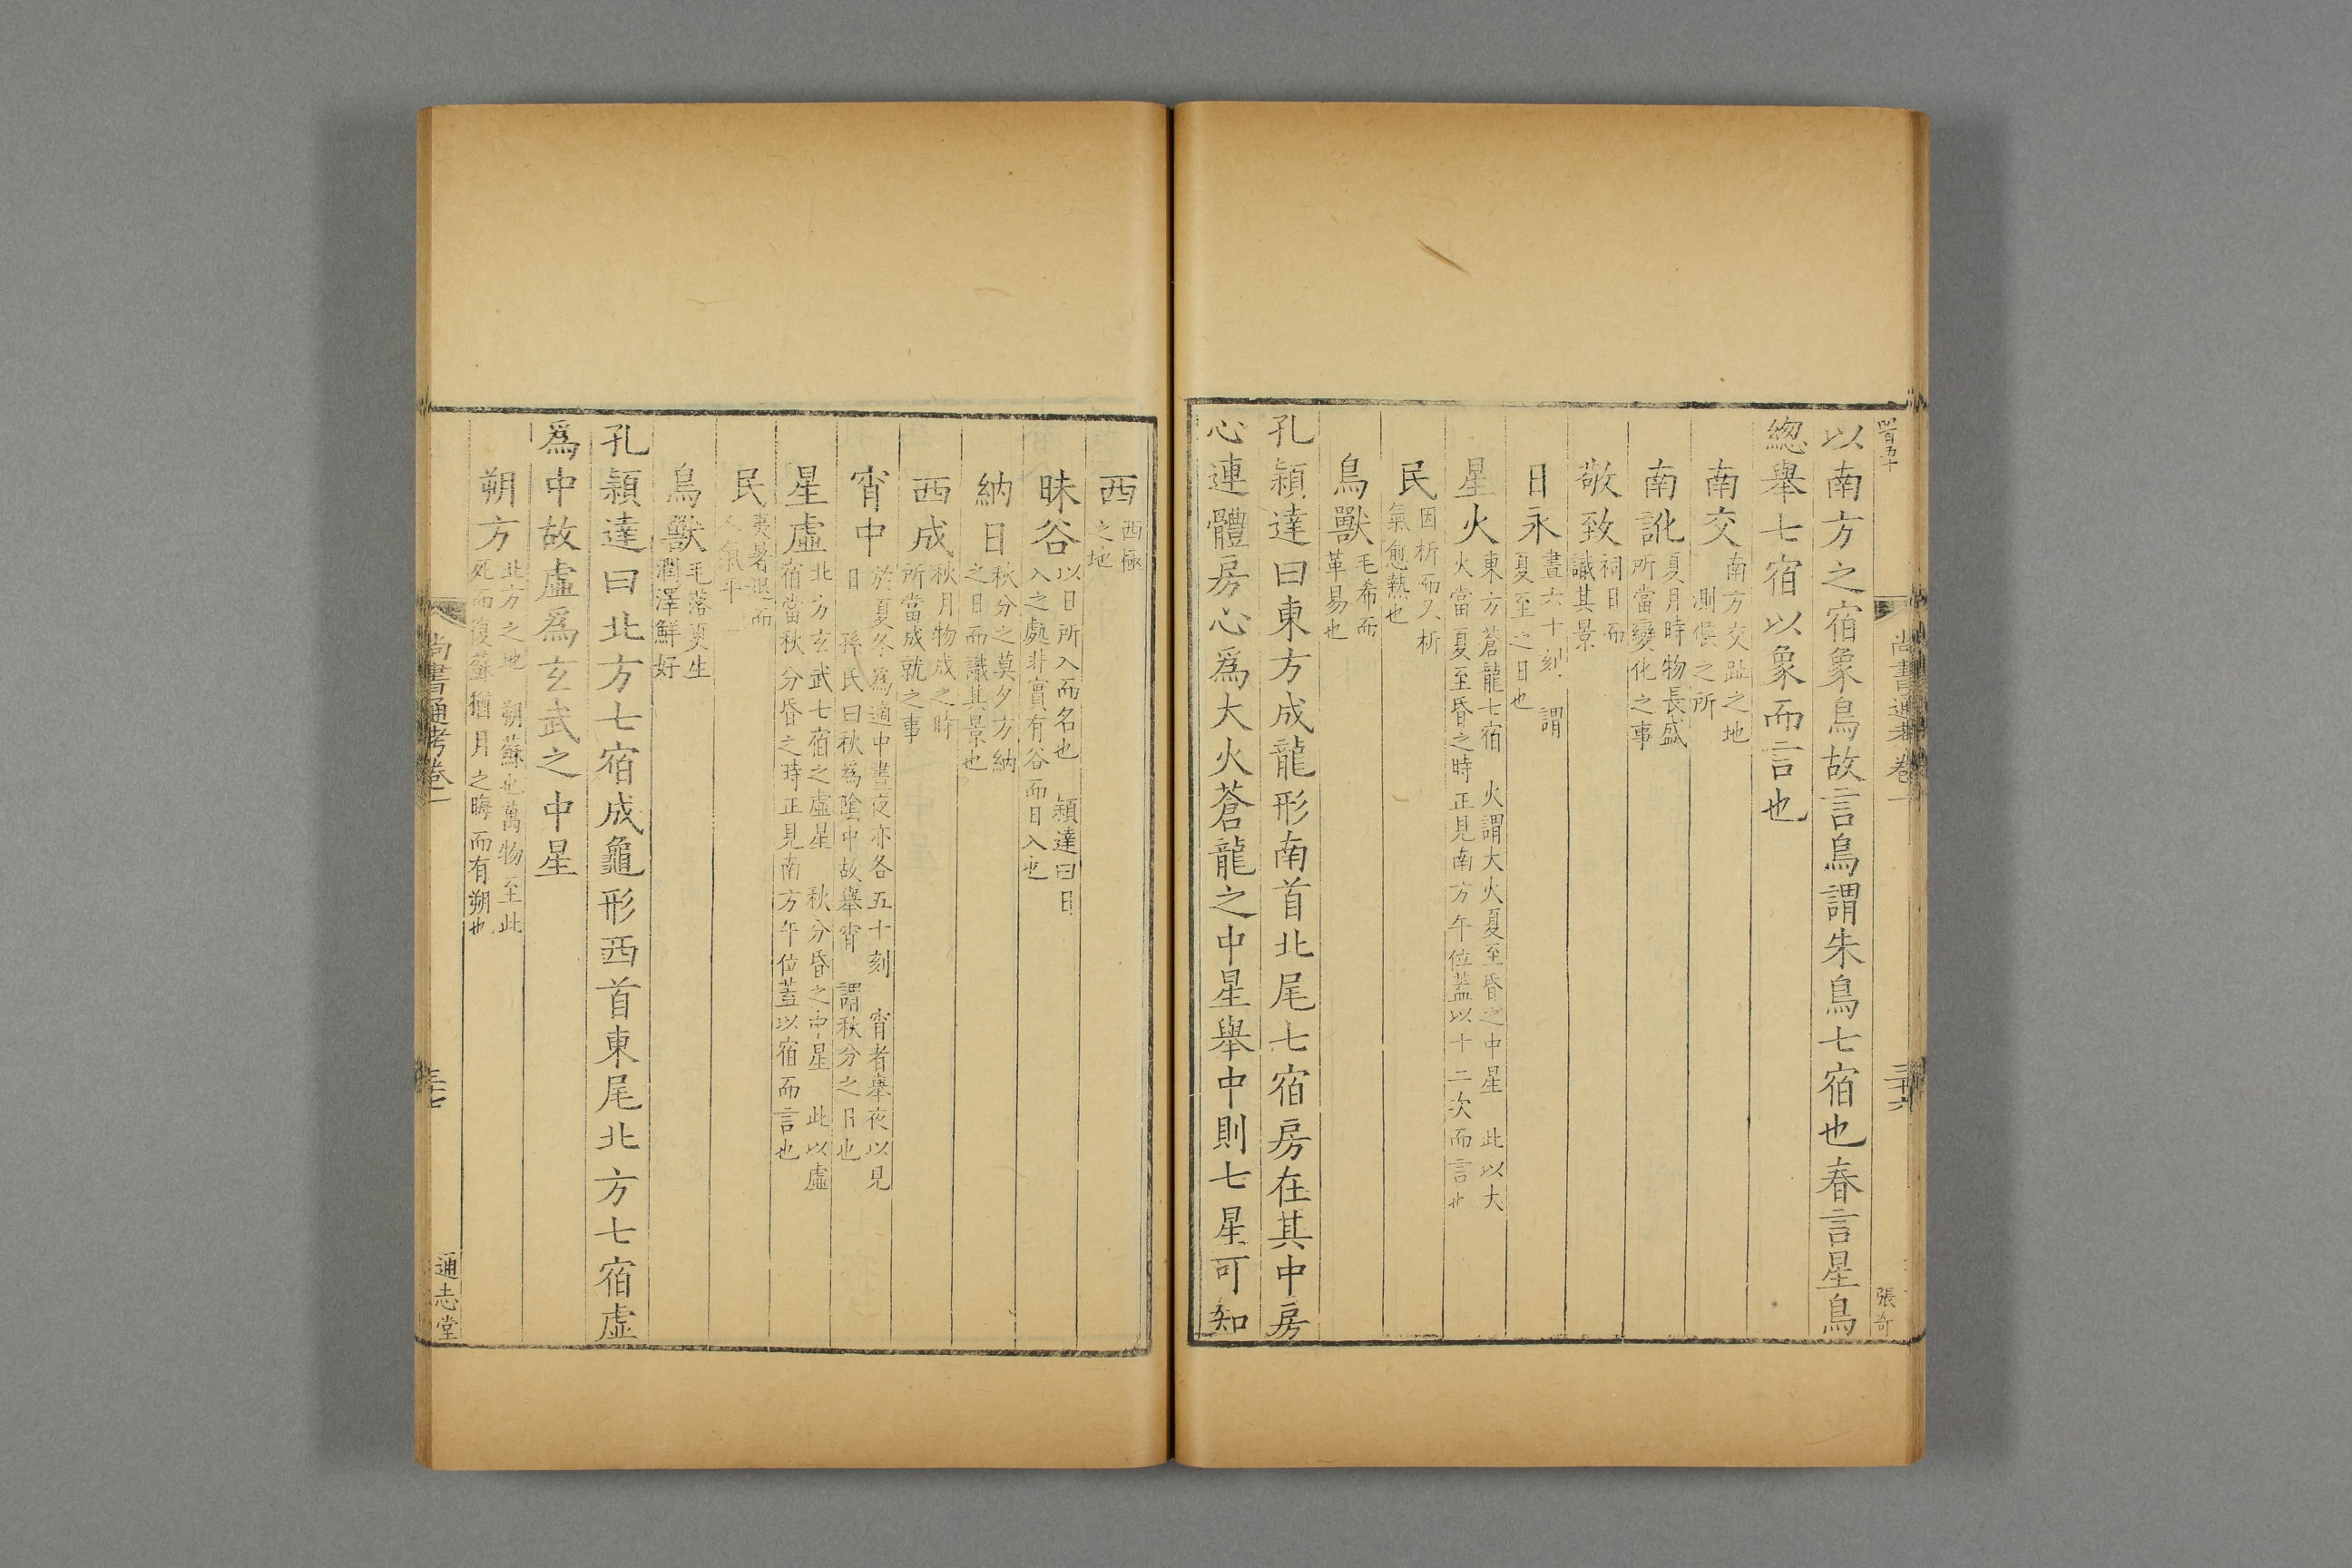 四百五十
尚書通考卷一
三十六
張奇
以南方之宿象鳥故言鳥謂朱鳥七宿也春言星鳥
緫舉七宿以象而言也
南交南方交趾之地
測候之所
南訛夏月時物長盛
所當變化之事
敬致祠日而
識其景
日永晝六十刻 謂
夏至之日也
星火東方蒼龍七宿 火謂大火夏至昏之中星 此以大
火當夏至昏之時正見南方午位蓋以十二次而言也
民因析而又析
氣愈熱也
鳥獸毛希而
革易也
孔穎達曰東方成龍形南首北尾七宿房在其中房
心連體房心爲大火蒼龍之中星舉中則七星可知
西西極
之地
昧谷以日所入而名也 穎達曰日
入之處非實有谷而日入也
納日秋分之莫夕方納
之日而識其景也
西成秋月物成之時
所當成就之事
宵中於夏冬爲適中晝夜亦各五十刻 宵者舉夜以見
日 孫氏曰秋爲陰中故舉宵 謂秋分之日也
星虛北方玄武七宿之虛星 秋分昏之中星 此以虛
宿當秋分昏之時正見南方午位蓋以宿而言也
民夷暑退而
人氣平
鳥獸毛落更生
潤澤鮮好
孔穎達曰北方七宿成龜形西首東尾北方七宿虛
爲中故虛爲玄武之中星
朔方北方之地 朔蘇也萬物至此
死而復蘇猶月之晦而有朔也
尚書通考卷一
三十七
通志堂